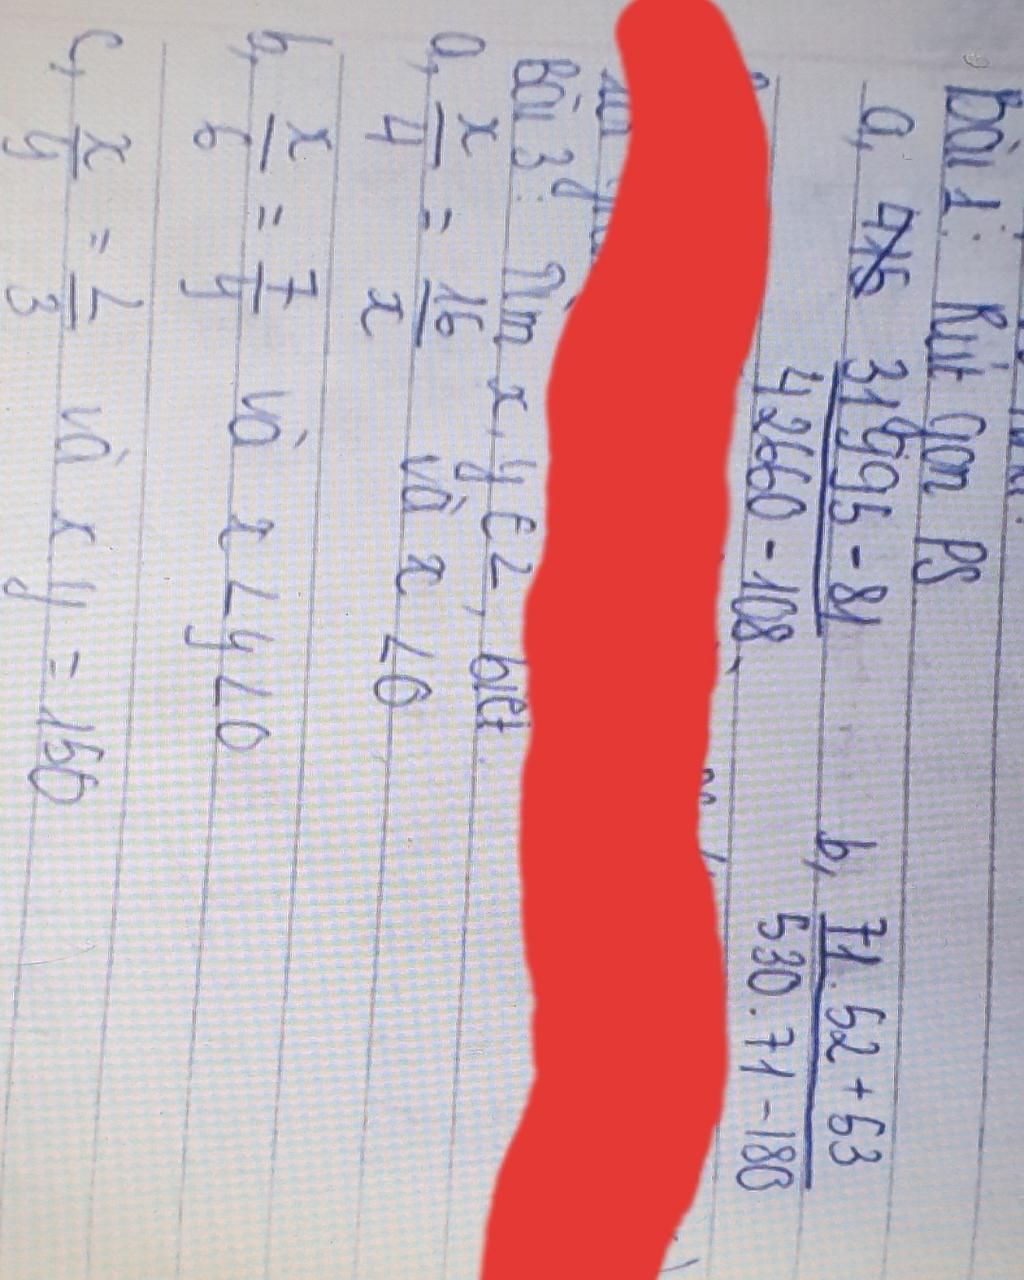 Bài 1: Rút gọn PS
a, 31995 - 81 b, 71.52 + 53
42660 - 108 530.71 - 180
Bài 3: Tìm x, y ∈ Z, biết
a, x/4 = 16/x và x < 0
b, x/6 = 7/y và x < y < 0
c, x/y = 2/3 và xy = 150